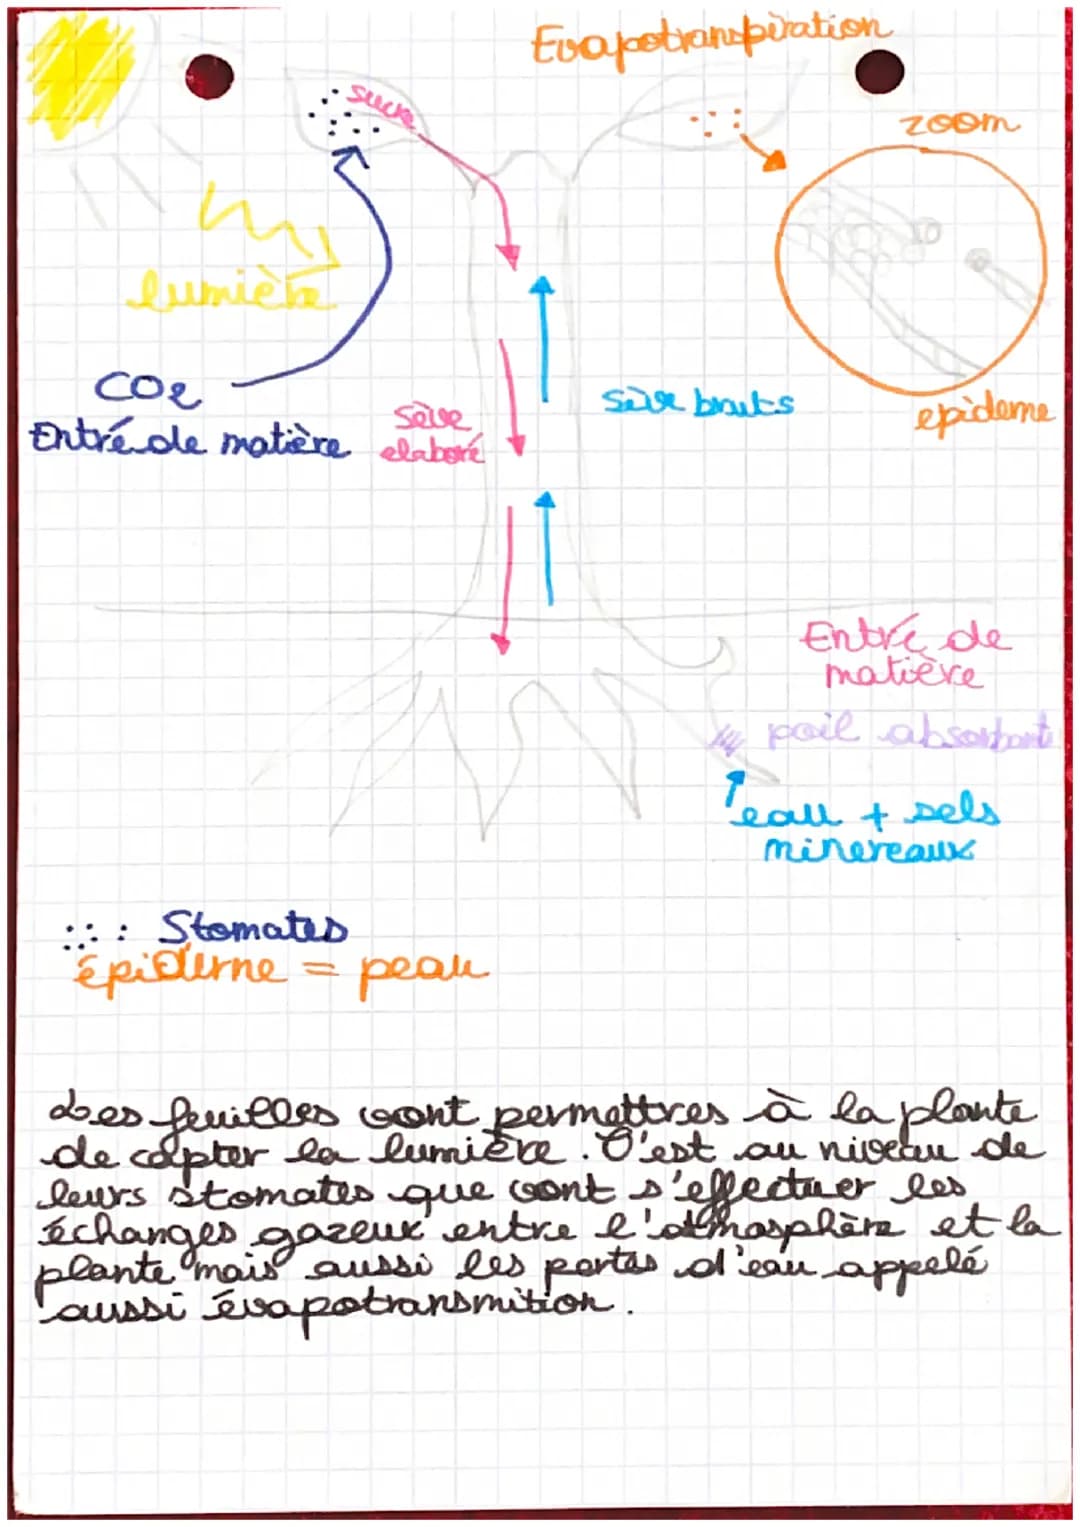 Evapotranspiration
sucre
zoom
lumière
CO2
Entré de matière
Sève
elaboré
Sève bruts
epideme
Entré de
matière
poil absorbant
eau + sels
minereaux
: Stomates
épiderne = peau
Les feuilles vont permettres à la plante
de capter la lumière. C'est au niveau de
leurs stomates que vont s'effectuer les
échanges gazeux entre l'atmosphère et la
plante mais aussi les pertes d'eau appelé
aussi évapotransmition.